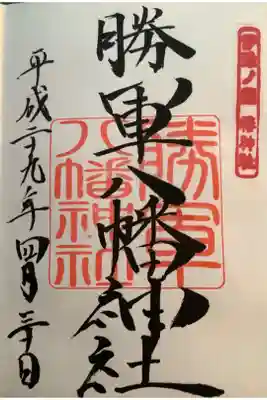 勝軍八幡神社
勝軍
八幡神社
平成二十九年四月三十日